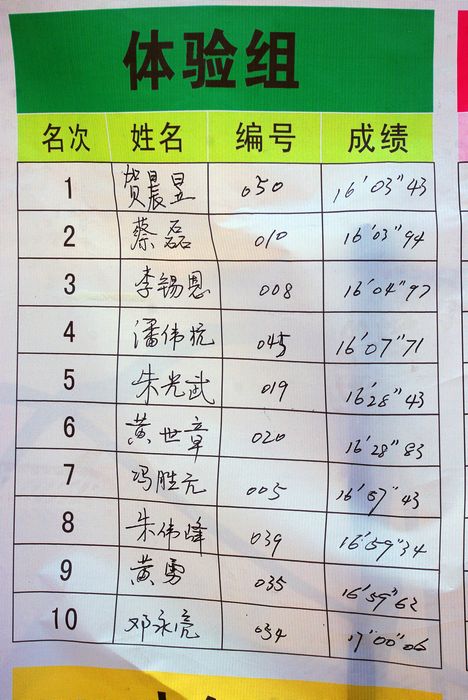 体验组
名次 姓名 编号 成绩
1 贺晨昱 050 16'03"43
2 蔡磊 010 16'03"94
3 李锡恩 008 16'04"97
4 潘伟杭 045 16'07"71
5 朱光武 019 16'28"43
6 黄世章 020 16'28"83
7 冯胜元 005 16'57"43
8 朱伟峰 039 16'59"34
9 黄勇 035 16'59"62
10 邓永亮 034 17'00"06